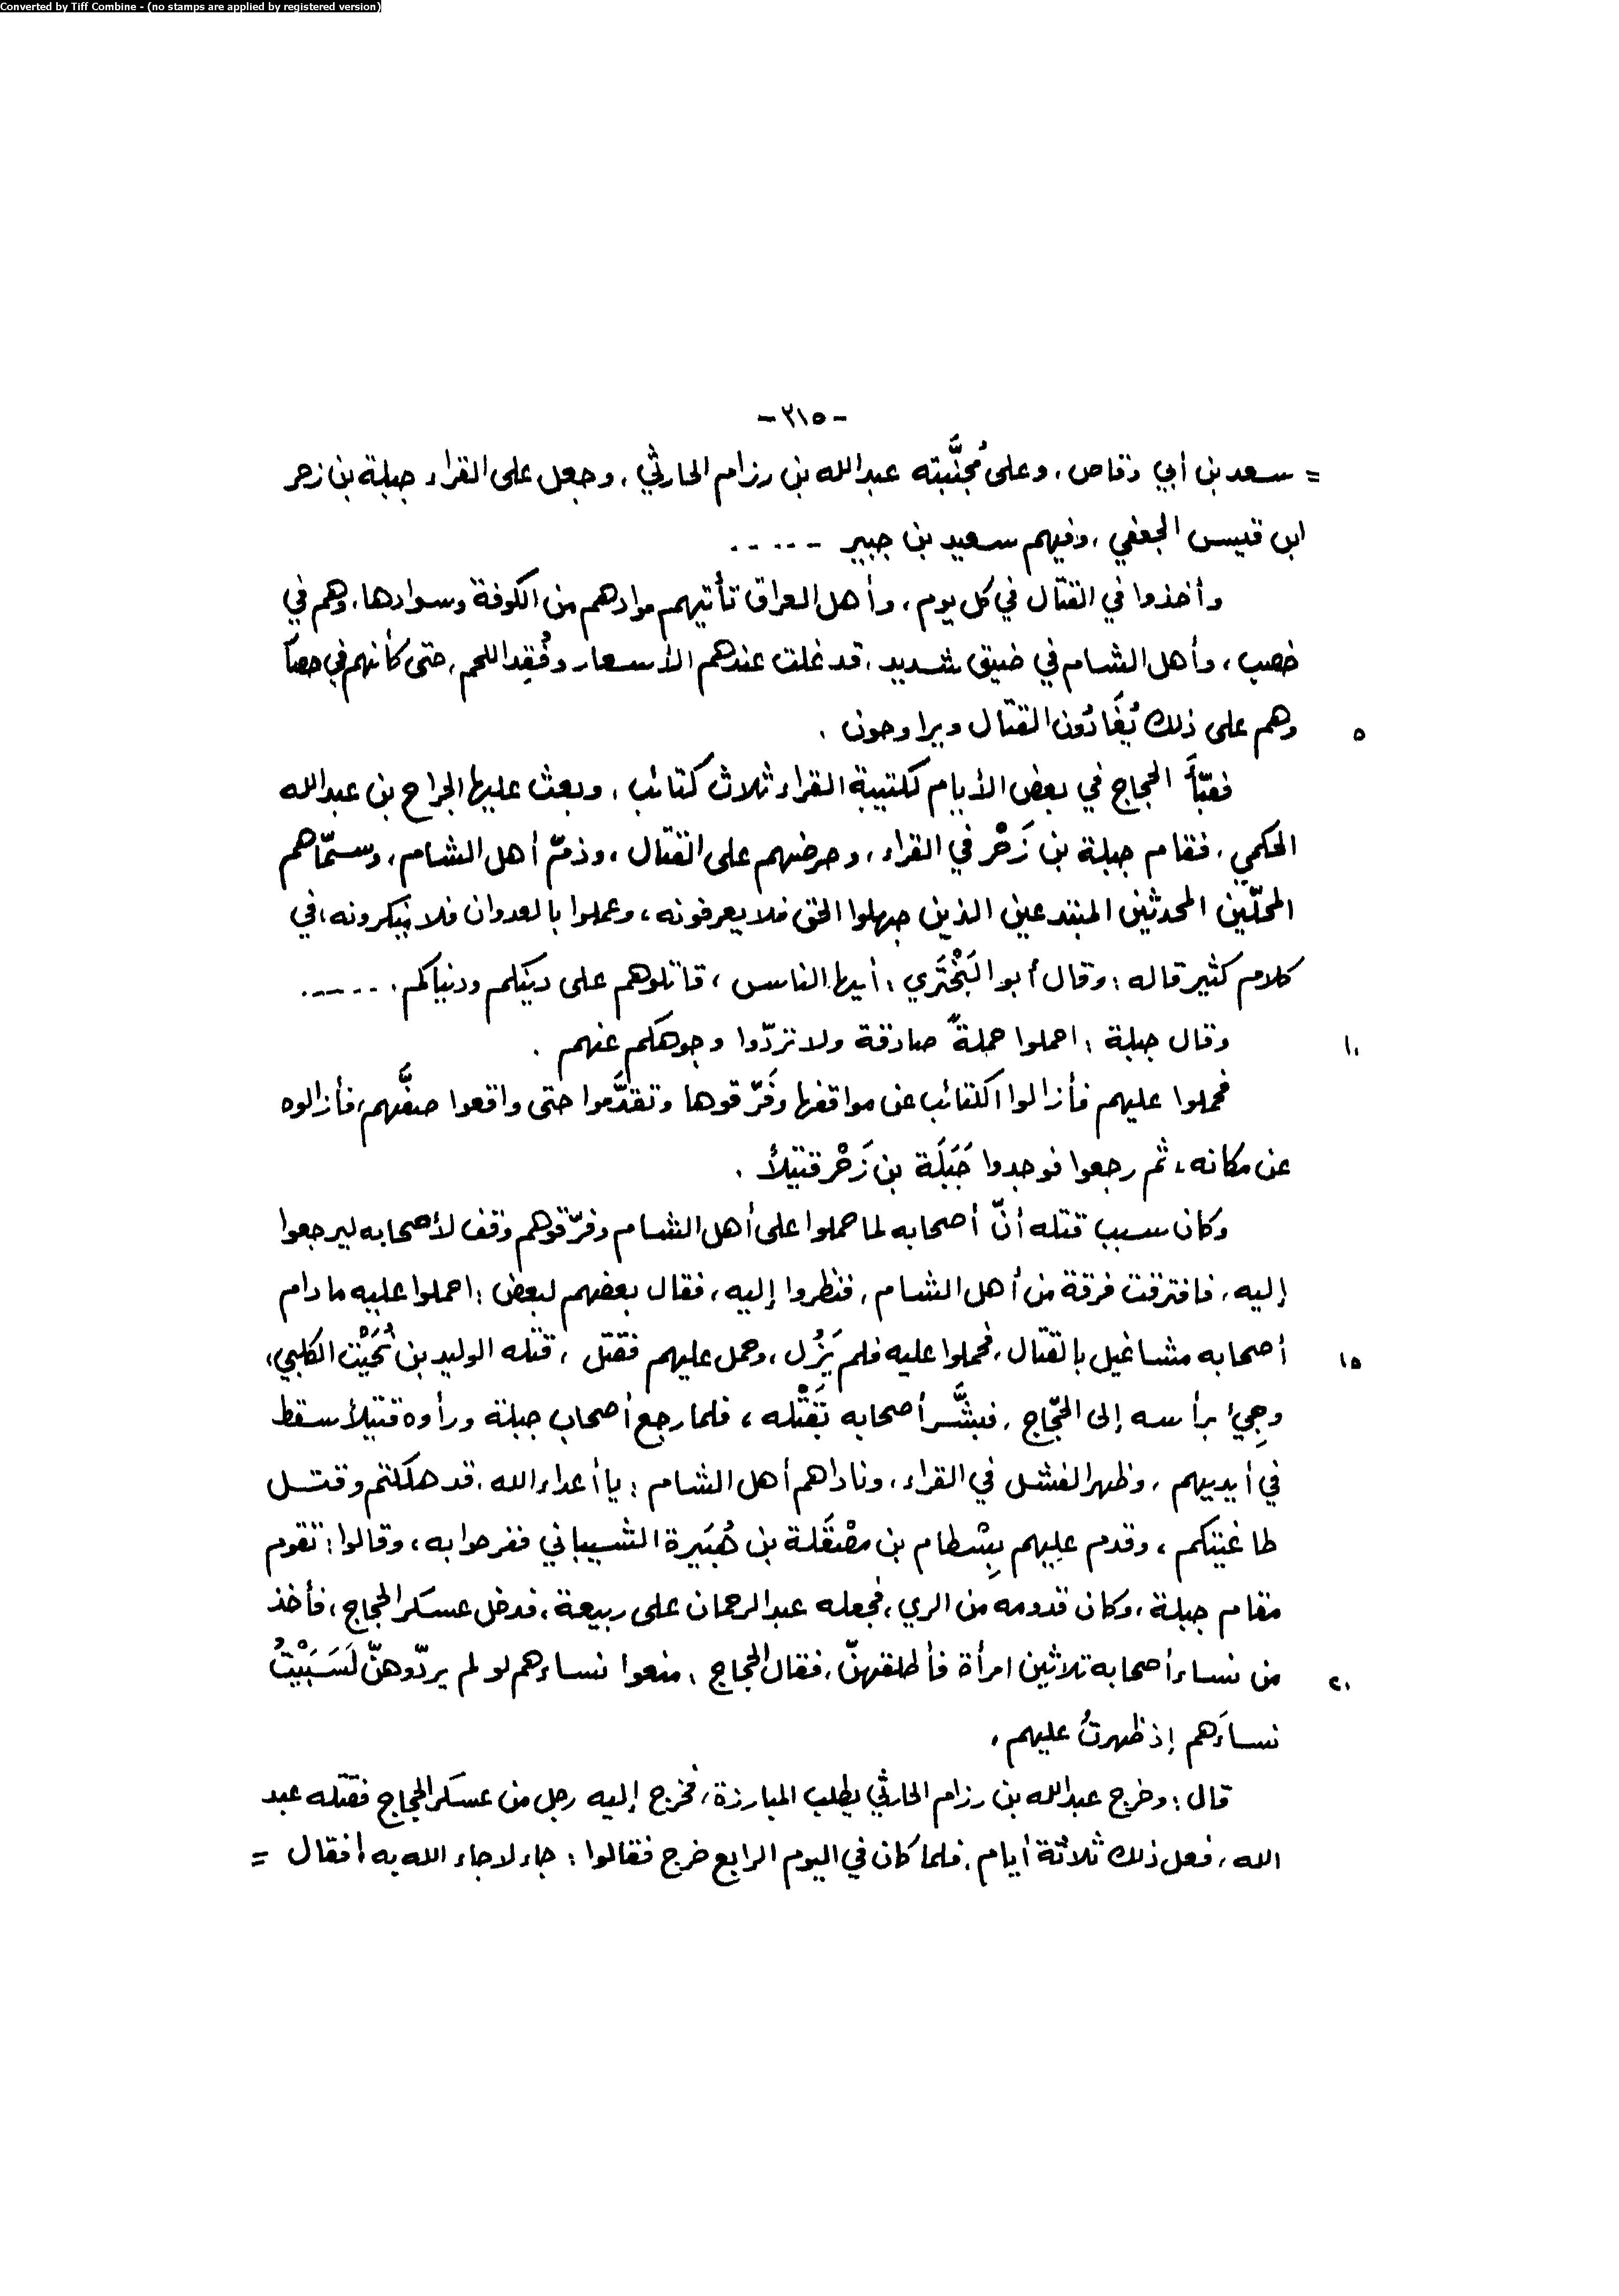 Converted by Tiff Combine - (no stamps are applied by registered version)
-٢١٥-
= سعد بن أبي وقاص، وعلى مُجنَّبته عبدالله بن رزام الحارثي، وجعل على القراء جبلة بن زحر
ابن قيس الجعفي، وفيهم سعيد بن جبير -----
وأخذوا في القتال في كل يوم، وأهل العراق تأتيهم موادهم من الكوفة وسوادها، وهم في
خصب، وأهل الشام في ضيق شديد، قد غلت عندهم الأسعار وفُقِد اللحم، حتى كأنهم في حصار
٥ وهم على ذلك يُغَادُون القتال ويراوحون.
فعبّأَ الحجاج في بعض الأيام لكتيبة القراء ثلاث كتائب، وبعث عليها الجراح بن عبدالله
الحكمي، فقام جبلة بن زَحْر في القراء، وحرضهم على القتال، وذمّ أهل الشام، وسمّاهم
المحلّين المحدثين المبتدعين الذين جهلوا الحق فلا يعرفونه، وعملوا بالعدوان فلا ينكرونه، في
كلام كثير قاله: وقال أبو البَخْتَري: أيها الناس، قاتلوهم على دينكم ودنياكم. -----
١٠ وقال جبلة: احملوا حملةً صادقة ولا تردّوا وجوهكم عنهم.
فحملوا عليهم فأزالوا الكتائب عن مواقفها وفَرّقوها وتقدَّموا حتى واقعوا صفَّهم، فأزالوه
عن مكانه، ثم رجعوا فوجدوا جَبَلَة بن زَحْر قتيلاً.
وكان سبب قتله أنّ أصحابه لما حملوا على أهل الشام وفرّقوهم وقف لأصحابه ليرجعوا
إليه، فافترقت فرقة من أهل الشام، فنظروا إليه، فقال بعضهم لبعض: احملوا عليه ما دام
١٥ أصحابه مشاغيل بالقتال، فحملوا عليه فلم يَزُل، وحمل عليهم فقتل، قتله الوليد بن نُحَيْت الكلبي،
وجِيءَ برأسه إلى الحجّاج، فبشَّر أصحابه بَقَتْله، فلما رجع أصحاب جبلة ورأوه قتيلاً سقط
في أيديهم، وظهر الفشل في القراء، وناداهم أهل الشام: يا أعداء الله، قد هلكتم وقتل
طاغيتكم، وقدم عليهم بِسْطام بن مصْقَلة بن هُبَيرة الشيباني ففرحوا به، وقالوا: تقوم
مقام جبلة، وكان قدومه من الري، فجعله عبدالرحمان على ربيعة، فدخل عسكر الحجاج، فأخذ
٢٠ من نساء أصحابه ثلاثين امرأة فأطلقهنّ، فقال الحجاج: منعوا نساءهم لو لم يردّوهنّ لَسَبَيْتُ
نساءَهم إذ ظهرتُ عليهم.
قال: وخرج عبدالله بن رزام الحارثي يطلب المبارزة، فخرج إليه رجل من عسكر الحجاج فقتله عبد
الله، فعل ذلك ثلاثة أيام، فلما كان في اليوم الرابع خرج فقالوا: جاء لا جاء الله به! فقال =